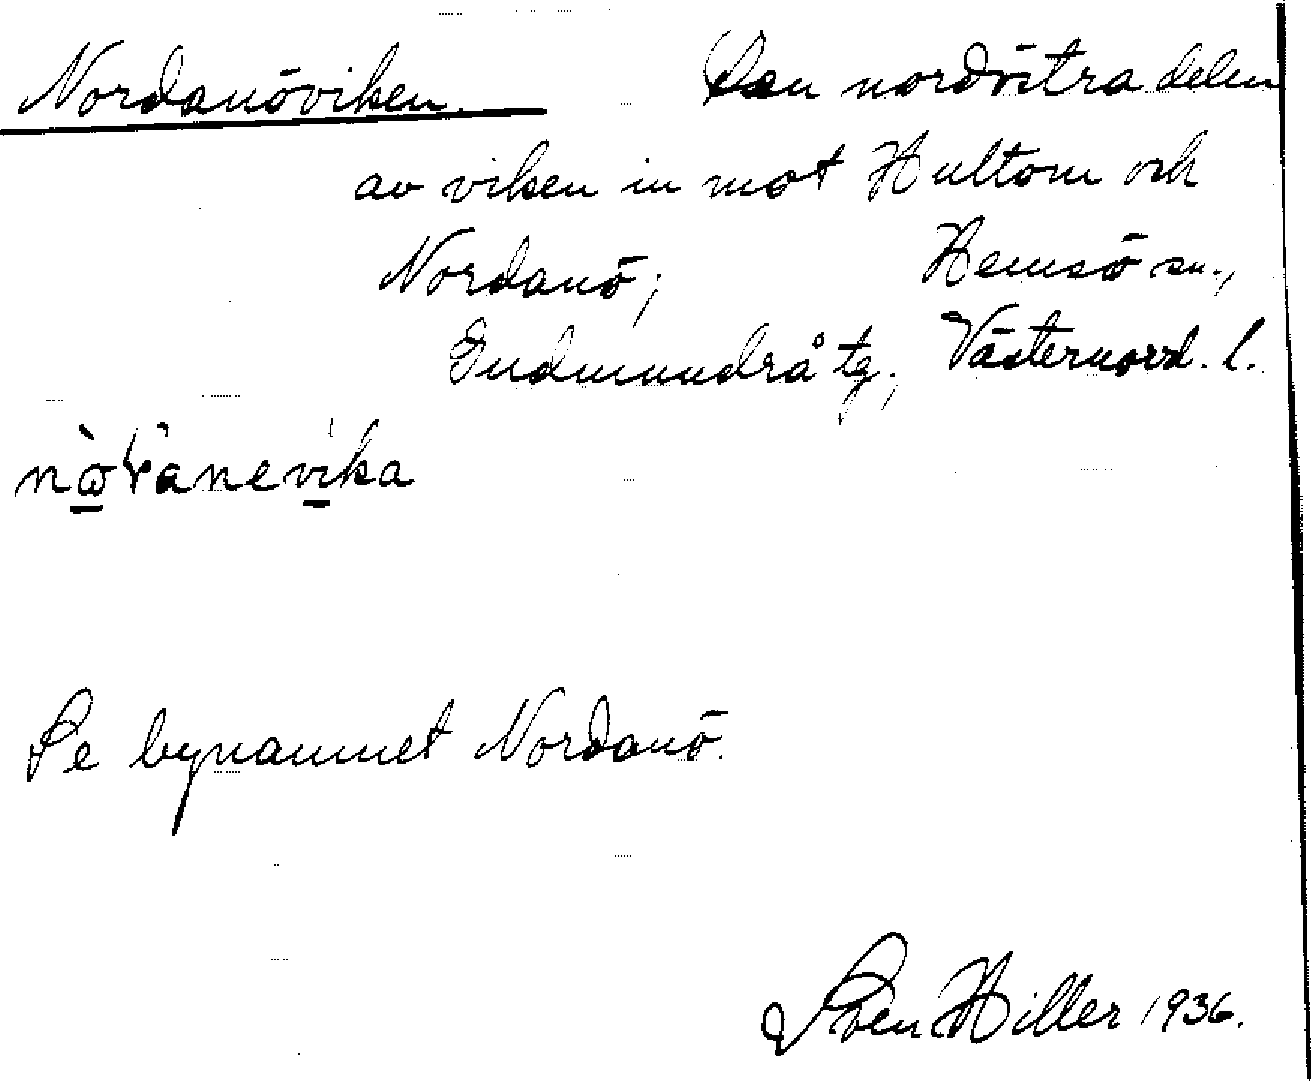 Nordanöviken. Den nordöstra delen
av viken in mot Hultom och
Nordanö; Hemsö sn.,
Gudmundrå tg., Västernorrl. l.
Se bynamnet Nordanö.
Sven Hiller 1936.